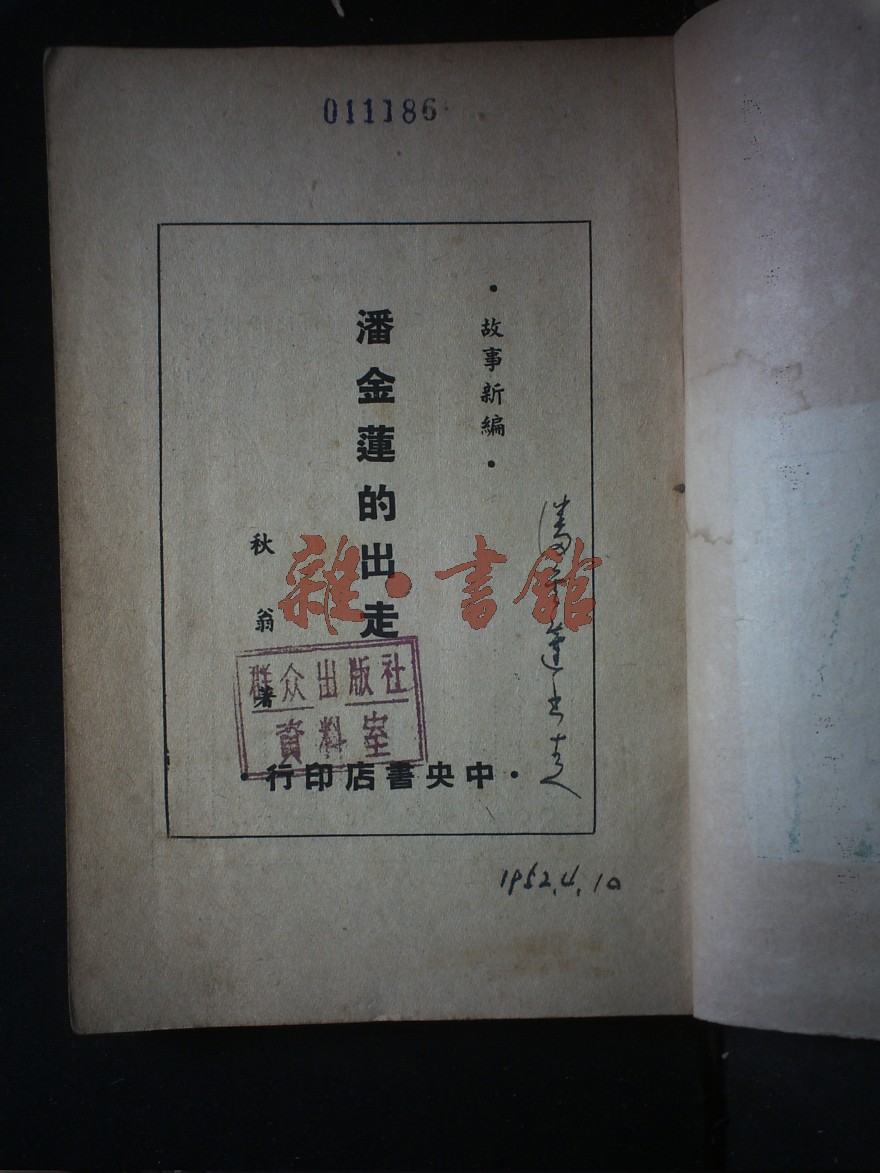 011186
•故事新編•
潘金蓮的出走
秋翁著
•中央書店印行•
群众出版社
資料室
潘金蓮出走
1952.4.10
雜•書館